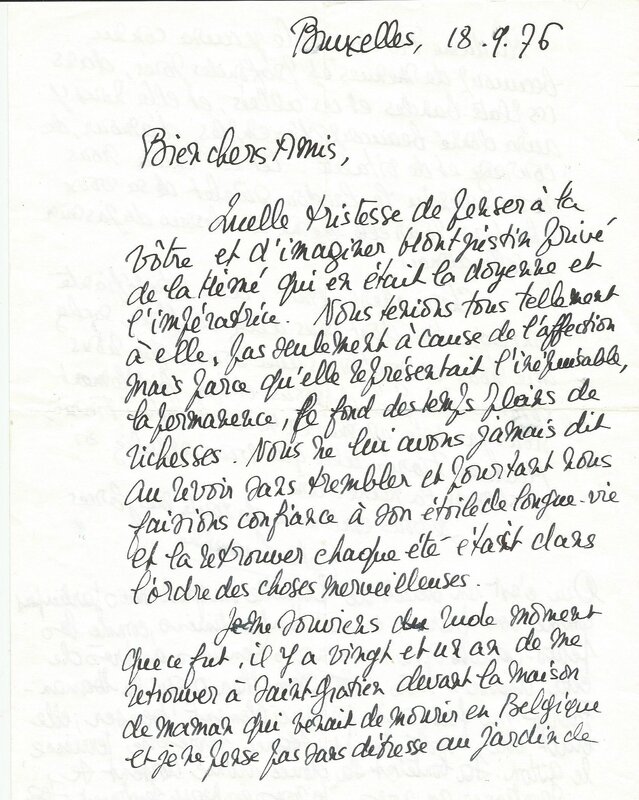 Bruxelles, 18.9.76
Bien chers Amis,
Quelle tristesse de penser à la
vôtre et d'imaginer Montjustin privé
de la Mémé qui en était la doyenne et
l'impératrice. Nous tenions tous tellement
à elle, pas seulement à cause de l'affection
mais parce qu'elle représentait l'inépuisable,
la permanence, le fond des temps pleins de
richesses. Nous ne lui avons jamais dit
au revoir sans trembler et pourtant nous
faisions confiance à son étoile de longue-vie
et la retrouver chaque été était dans
l'ordre des choses merveilleuses.
Je me souviens du rude moment
que ce fut, il y a vingt et un an de me
retrouver à Saint Gratien devant la maison
de maman qui venait de mourir en Belgique
et je ne pense pas sans détresse au jardin de